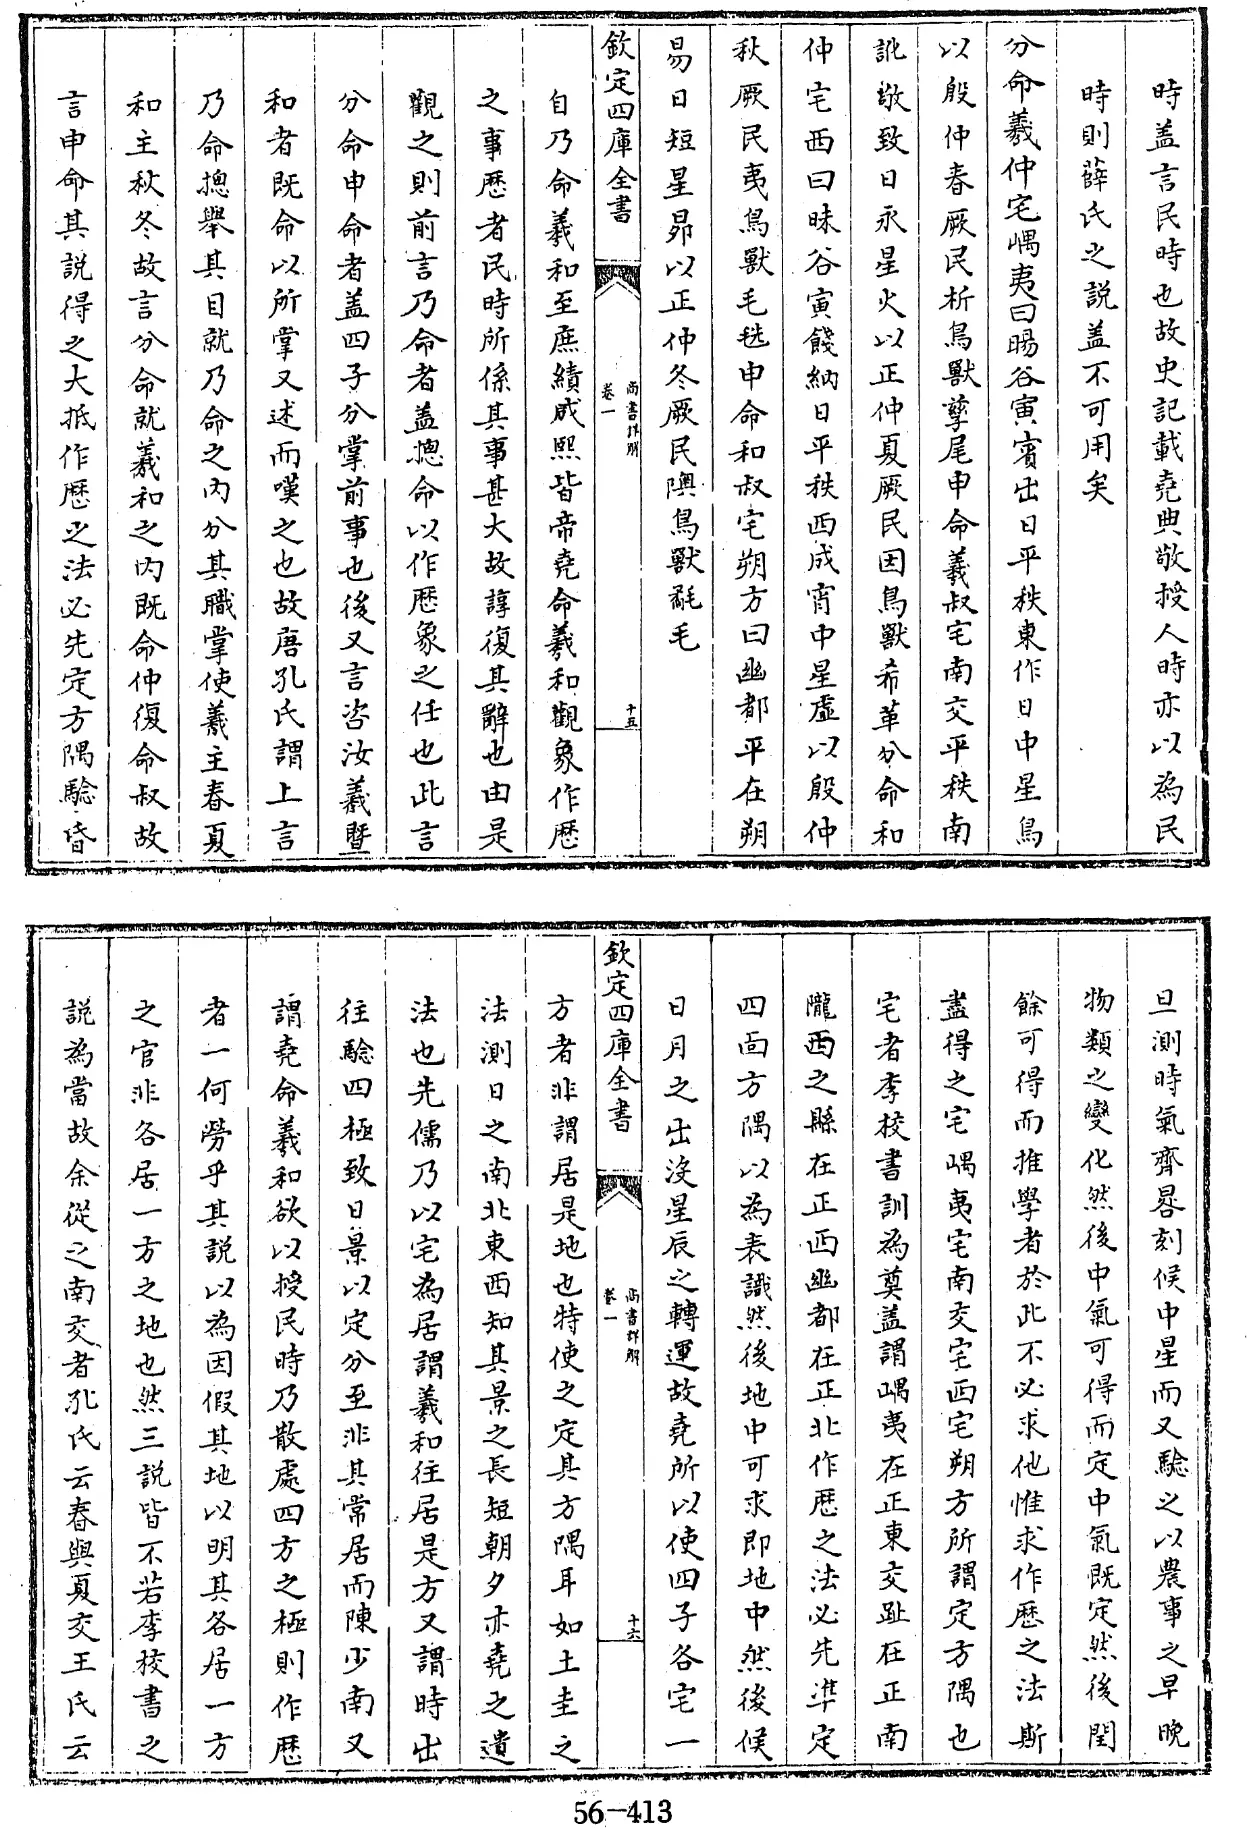 時盖言民時也故史記載堯典敬授人時亦以為民
時則薛氏之説盖不可用矣
分命羲仲宅嵎夷曰暘谷寅賓出日平秩東作日中星鳥
以殷仲春厥民析鳥獸孳尾申命羲叔宅南交平秩南
訛敬致日永星火以正仲夏厥民因鳥獸希革分命和
仲宅西曰昧谷寅餞納日平秩西成宵中星虛以殷仲
秋厥民夷鳥獸毛毨申命和叔宅朔方曰幽都平在朔
易日短星昴以正仲冬厥民隩鳥獸氄毛
欽定四庫全書
尚書詳解
卷一
十五
自乃命羲和至庶績咸熙皆帝堯命羲和觀象作歴
之事歴者民時所係其事甚大故諄復其辭也由是
觀之則前言乃命者盖摠命以作歴象之任也此言
分命申命者盖四子分掌前事也後又言咨汝羲暨
和者既命以所掌又述而嘆之也故唐孔氏謂上言
乃命摠舉其目就乃命之内分其職掌使羲主春夏
和主秋冬故言分命就羲和之内既命仲復命叔故
言申命其説得之大抵作歴之法必先定方隅驗昏
旦測時氣齊晷刻候中星而又驗之以農事之早晚
物類之變化然後中氣可得而定中氣既定然後閏
餘可得而推學者於此不必求他惟求作歴之法斯
盡得之宅嵎夷宅南交宅西宅朔方所謂定方隅也
宅者李校書訓為奠盖謂嵎夷在正東交趾在正南
隴西之縣在正西幽都在正北作歴之法必先凖定
四面方隅以為表識然後地中可求即地中然後候
日月之出沒星辰之轉運故堯所以使四子各宅一
欽定四庫全書
尚書詳解
卷一
十六
方者非謂居是地也特使之定其方隅耳如土圭之
法測日之南北東西知其景之長短朝夕亦堯之遺
法也先儒乃以宅為居謂羲和往居是方又謂時出
往驗四極致日景以定分至非其常居而陳少南又
謂堯命羲和欲以授民時乃散處四方之極則作歴
者一何勞乎其説以為因假其地以明其各居一方
之官非各居一方之地也然三説皆不若李校書之
説為當故余從之南交者孔氏云春與夏交王氏云
56-413